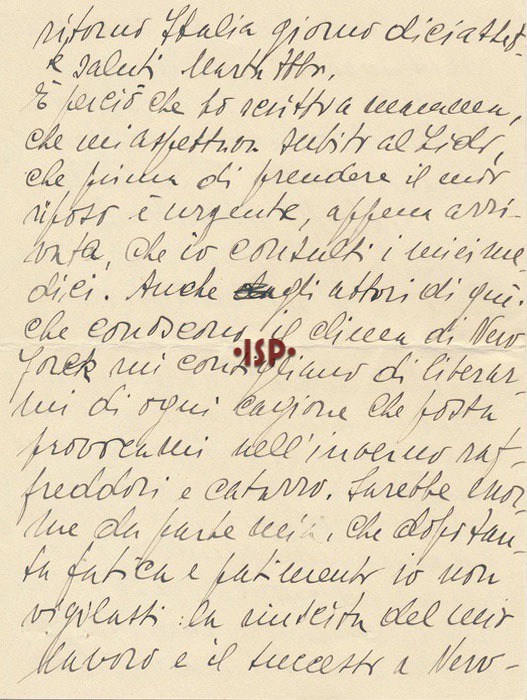 ritorno Italia giorno diciasset-
te saluti Marta Abba.
È perciò che ho scritto a mamma,
che mi aspettava subito al Lido,
che prima di prendere il mio
riposo è urgente, appena arri-
vata, che io consulti i miei me
dici. Anche gli attori di qui
che conoscono il clima di New
Yorck mi consigliano di liberar-
mi di ogni cagione che possa
provocarmi nell'inverno raf-
freddori e catarro. Sarebbe enor
me da parte mia, che dopo tan-
ta fatica e patimento io non
vigilassi la riuscita del mio
lavoro e il successo a New-
•ISP•